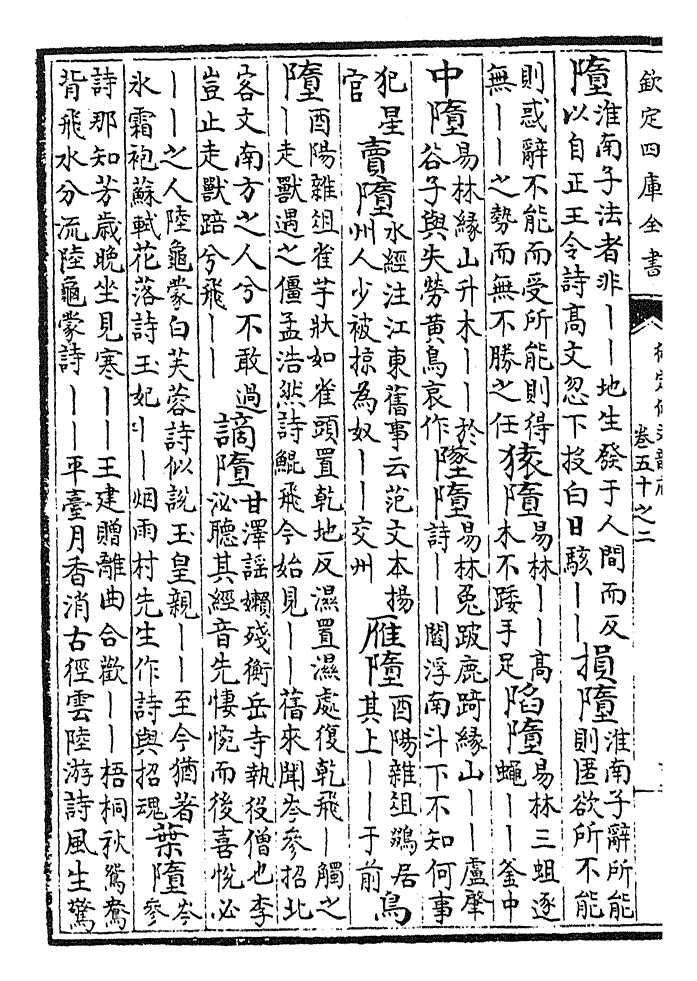 欽定四庫全書
卷五十之二
墮淮南子法者非丨丨地生發于人間而反
以自正王令詩髙文忽下投白日駭丨丨
損墮淮南子辭所能
則匿欲所不能
則惑辭不能而受所能則得
無丨丨之勢而無不勝之任
猿墮易林丨丨髙
木不踒手足
陷墮易林三蛆逐
蠅丨丨釜中
中墮易林緣山升木丨丨於
谷子與失勞黄鳥哀作
墜墮易林兔跛鹿踦緣山丨丨盧肇
詩丨丨閻浮南斗下不知何事
犯星
官
賣墮水經注江東舊事云范文本揚
州人少被掠為奴丨丨交州
雁墮酉陽雜俎鷂居
其上丨丨于前
鳥
墮酉陽雜俎雀芋狀如雀頭置乾地反濕置濕處復乾飛丨觸之
丨走獸遇之僵孟浩然詩鯤飛今始見丨丨舊來聞岑參招北
客文南方之人兮不敢過
豈止走獸踣兮飛丨丨
謫墮甘澤謡嬾殘衡岳寺執役僧也李
泌聽其經音先悽惋而後喜悅必
丨丨之人陸龜蒙白芙蓉詩似說玉皇親丨丨至今猶著
氷霜袍蘇軾花落詩玉妃丨丨烟雨村先生作詩與招魂
葉墮岑
參
詩那知芳歲晚坐見寒丨丨王建贈離曲合歡丨丨梧桐秋鴛鴦
背飛水分流陸龜蒙詩丨丨平臺月香消古徑雲陸游詩風生驚